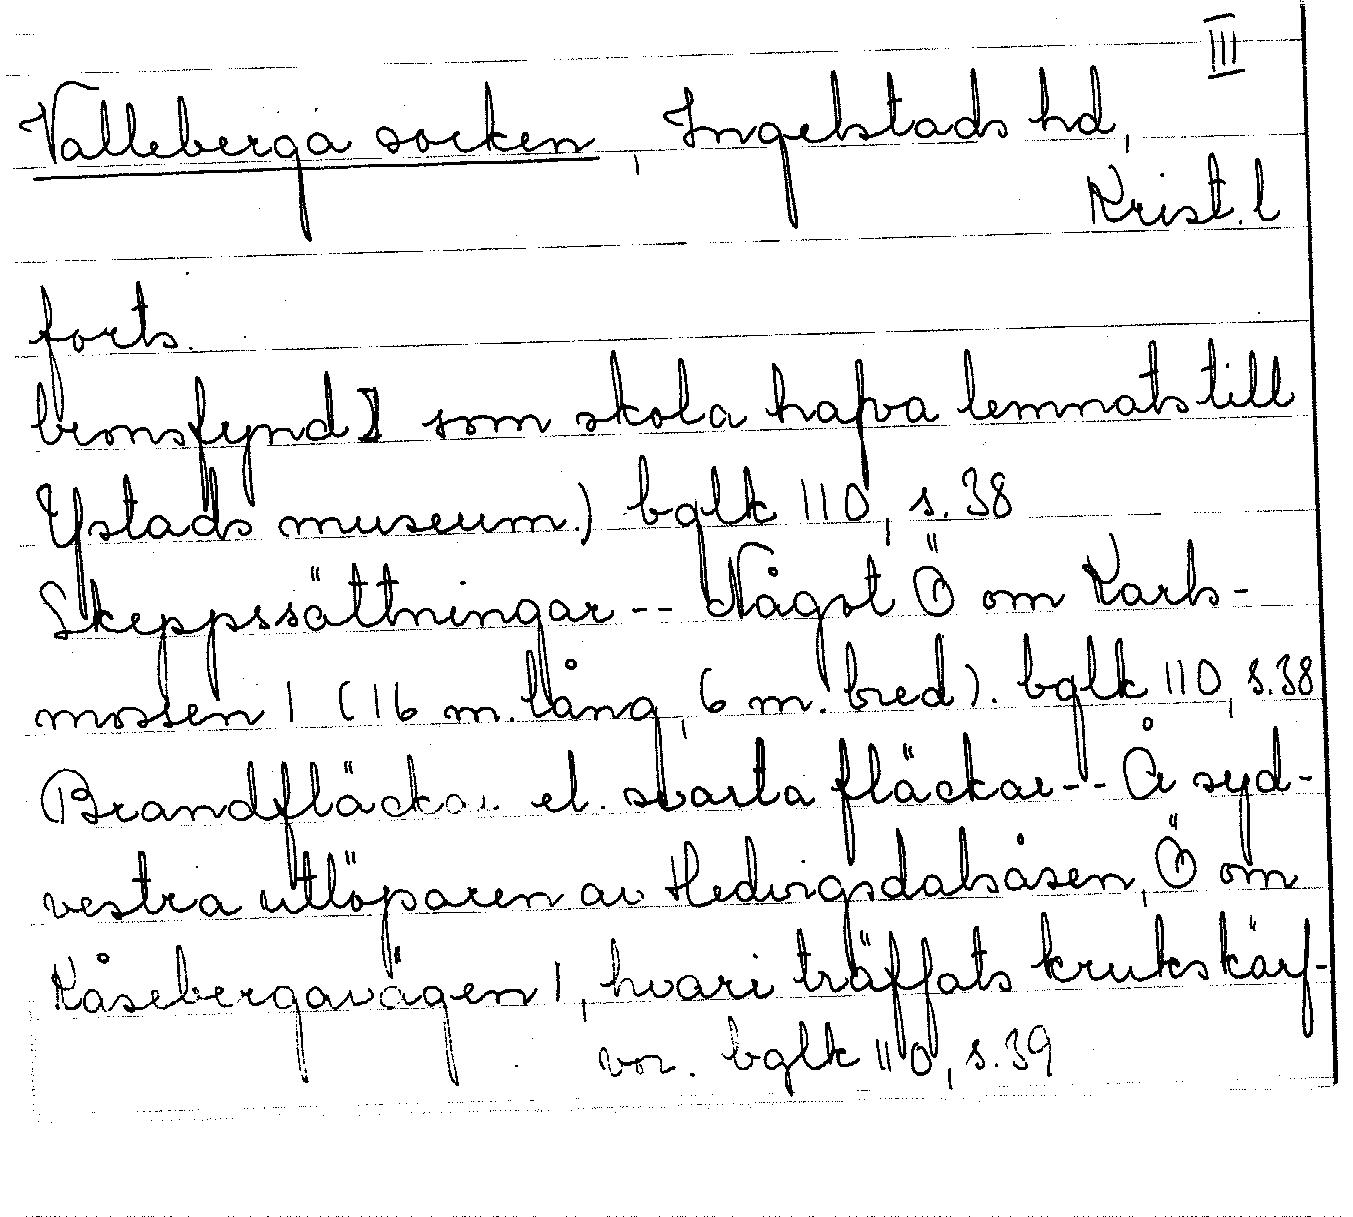 III
Valleberga socken, Ingelstads hd,
Krist. l
forts.
bronsfynd] som skola hafva lemnats till
Ystads museum.) bglk 110, s. 38
Skeppssättningar -- Något Ö om Karls-
mossen 1 (16 m. lång, 6 m. bred). bglk 110, s. 38
Brandfläckar el. svarta fläckar -- Å syd-
vestra utlöparen av Hedvigsdalsåsen, Ö om
Kåsebergavägen 1, hvari träffats krukskärf-
vor. bglk 110, s. 39